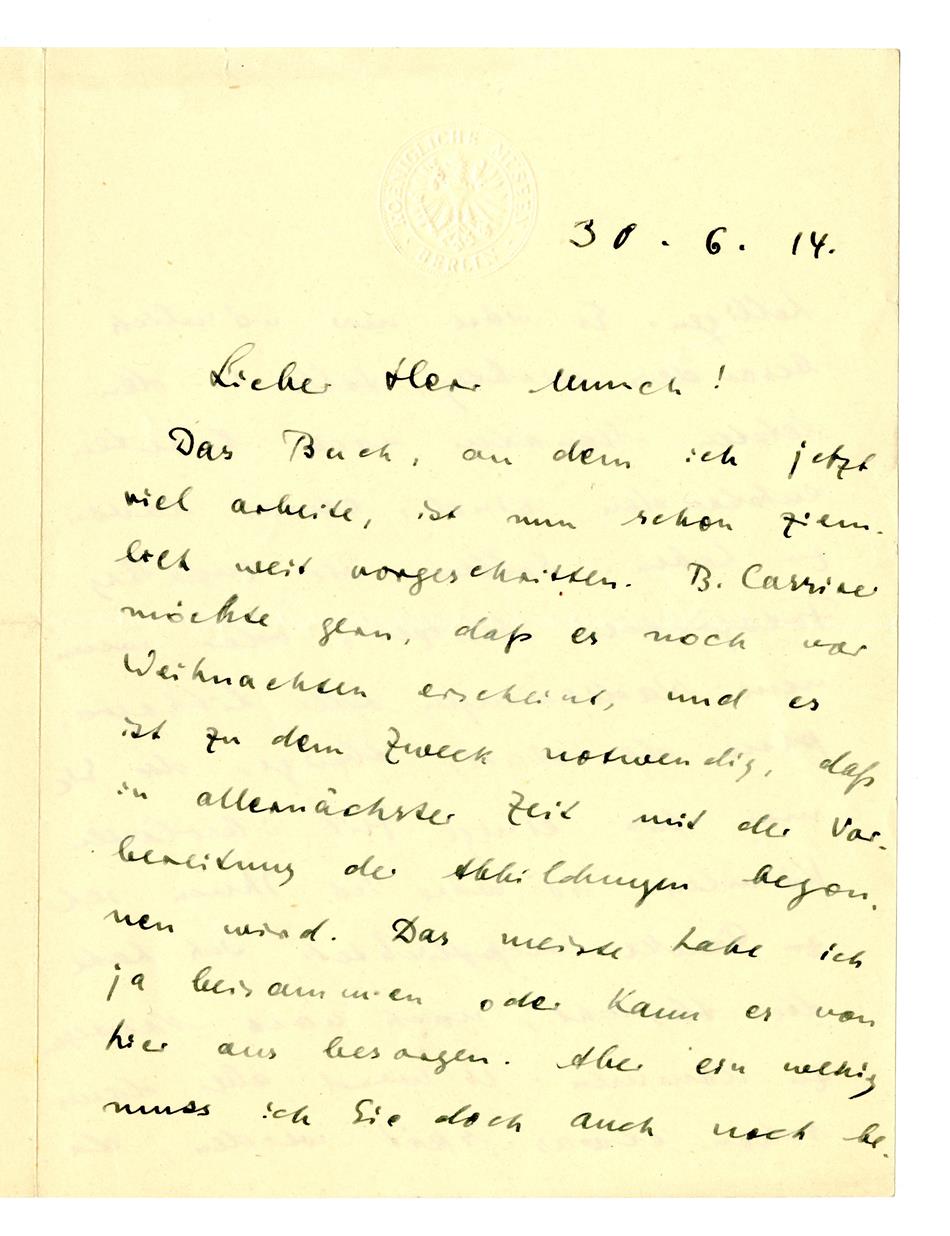 KOENIGLICHE MUSEEN
BERLIN
30. 6. 14.
Lieber Herr Munch!
Das Buch, an dem ich jetzt
viel arbeite, ist nun schon ziem-
lich weit vorgeschritten. B. Cassirer
möchte gern, daß es noch vor
Weihnachten erscheint, und es
ist zu dem Zweck notwendig, daß
in allernächster Zeit mit der Vor-
bereitung der Abbildungen begon-
nen wird. Das meiste habe ich
ja beisammen oder kann es von
hier aus besorgen. Aber ein wenig
muss ich Sie doch auch noch be-